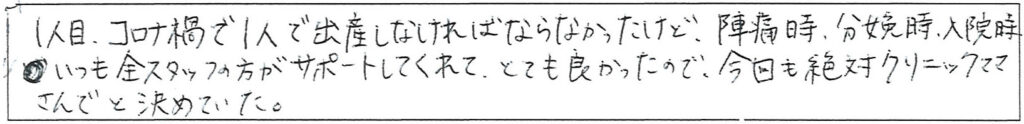 1人目、コロナ禍で1人で出産しなければならなかったけど、陣痛時、分娩時、入院時
いつも全スタッフの方がサポートしてくれて、とても良かったので、今回も絶対クリニックママ
さんでと決めていた。